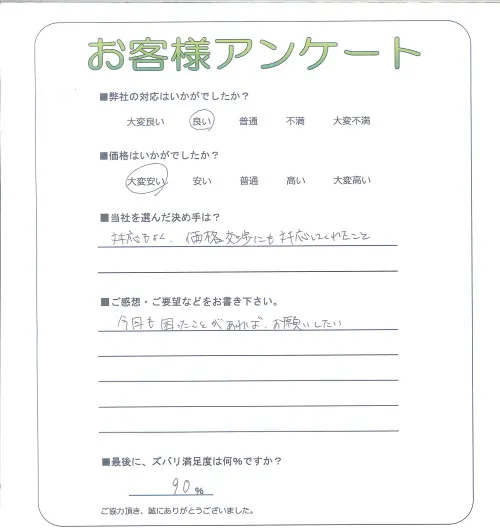 お客様アンケート
■弊社の対応はいかがでしたか？
大変良い 良い 普通 不満 大変不満
■価格はいかがでしたか？
大変安い 安い 普通 高い 大変高い
■当社を選んだ決め手は？
対応もよく、価格交渉にも対応してくれたこと
■ご感想・ご要望などをお書き下さい。
今日も困ったことがあれば、お願いしたい
■最後に、ズバリ満足度は何%ですか？
90%
ご協力頂き、誠にありがとうございました。